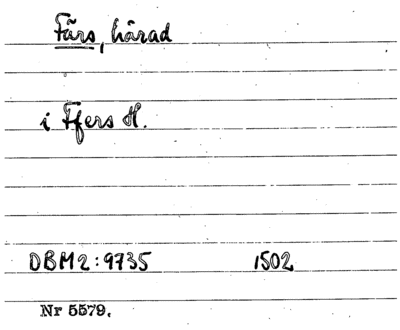 Färs, härad
i Ffers H.
DBM2:9735 1502
Nr 5579.